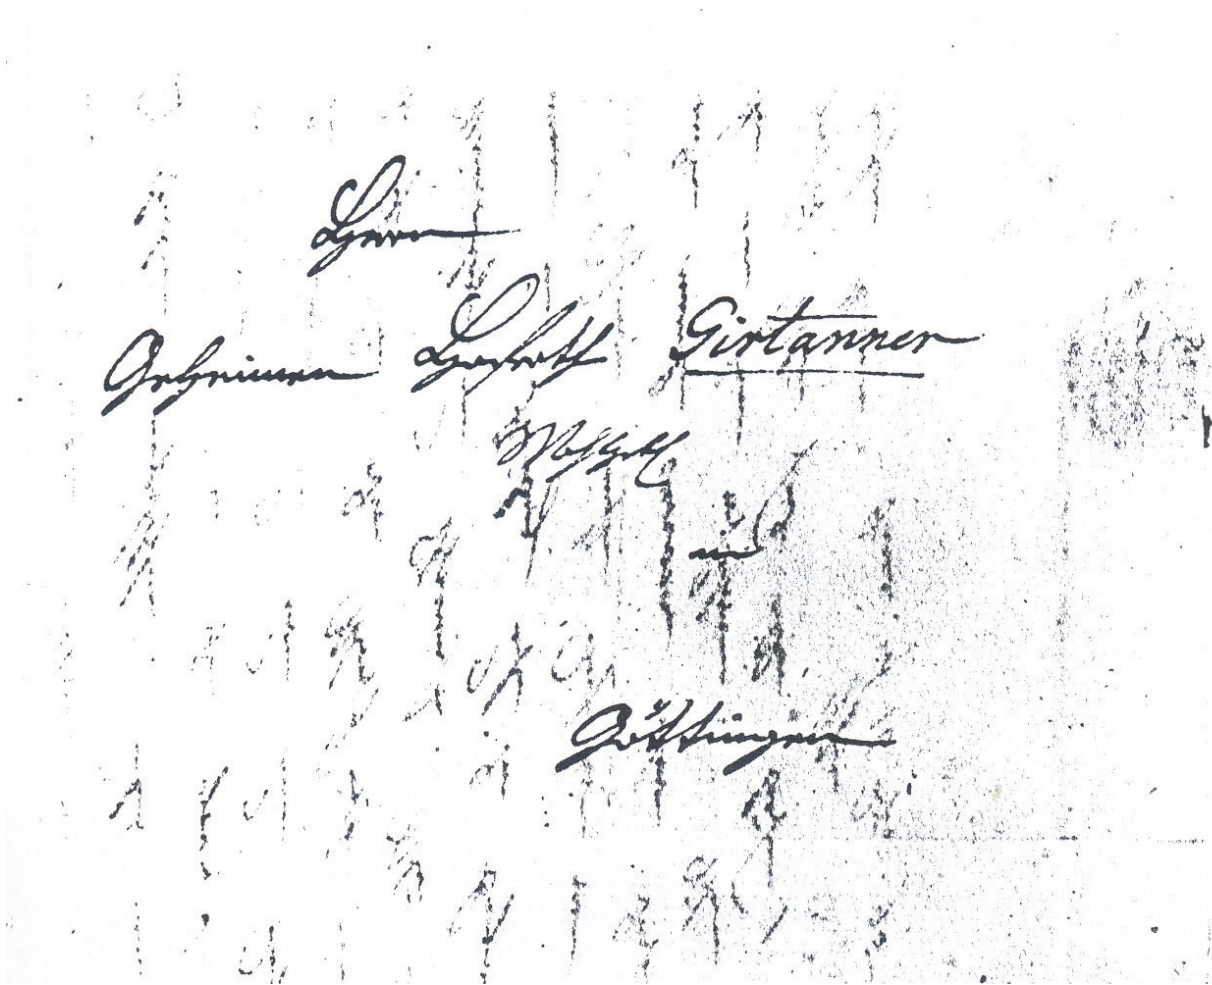 Herrn
Geheimen Hofrath Girtanner
in
Göttingen